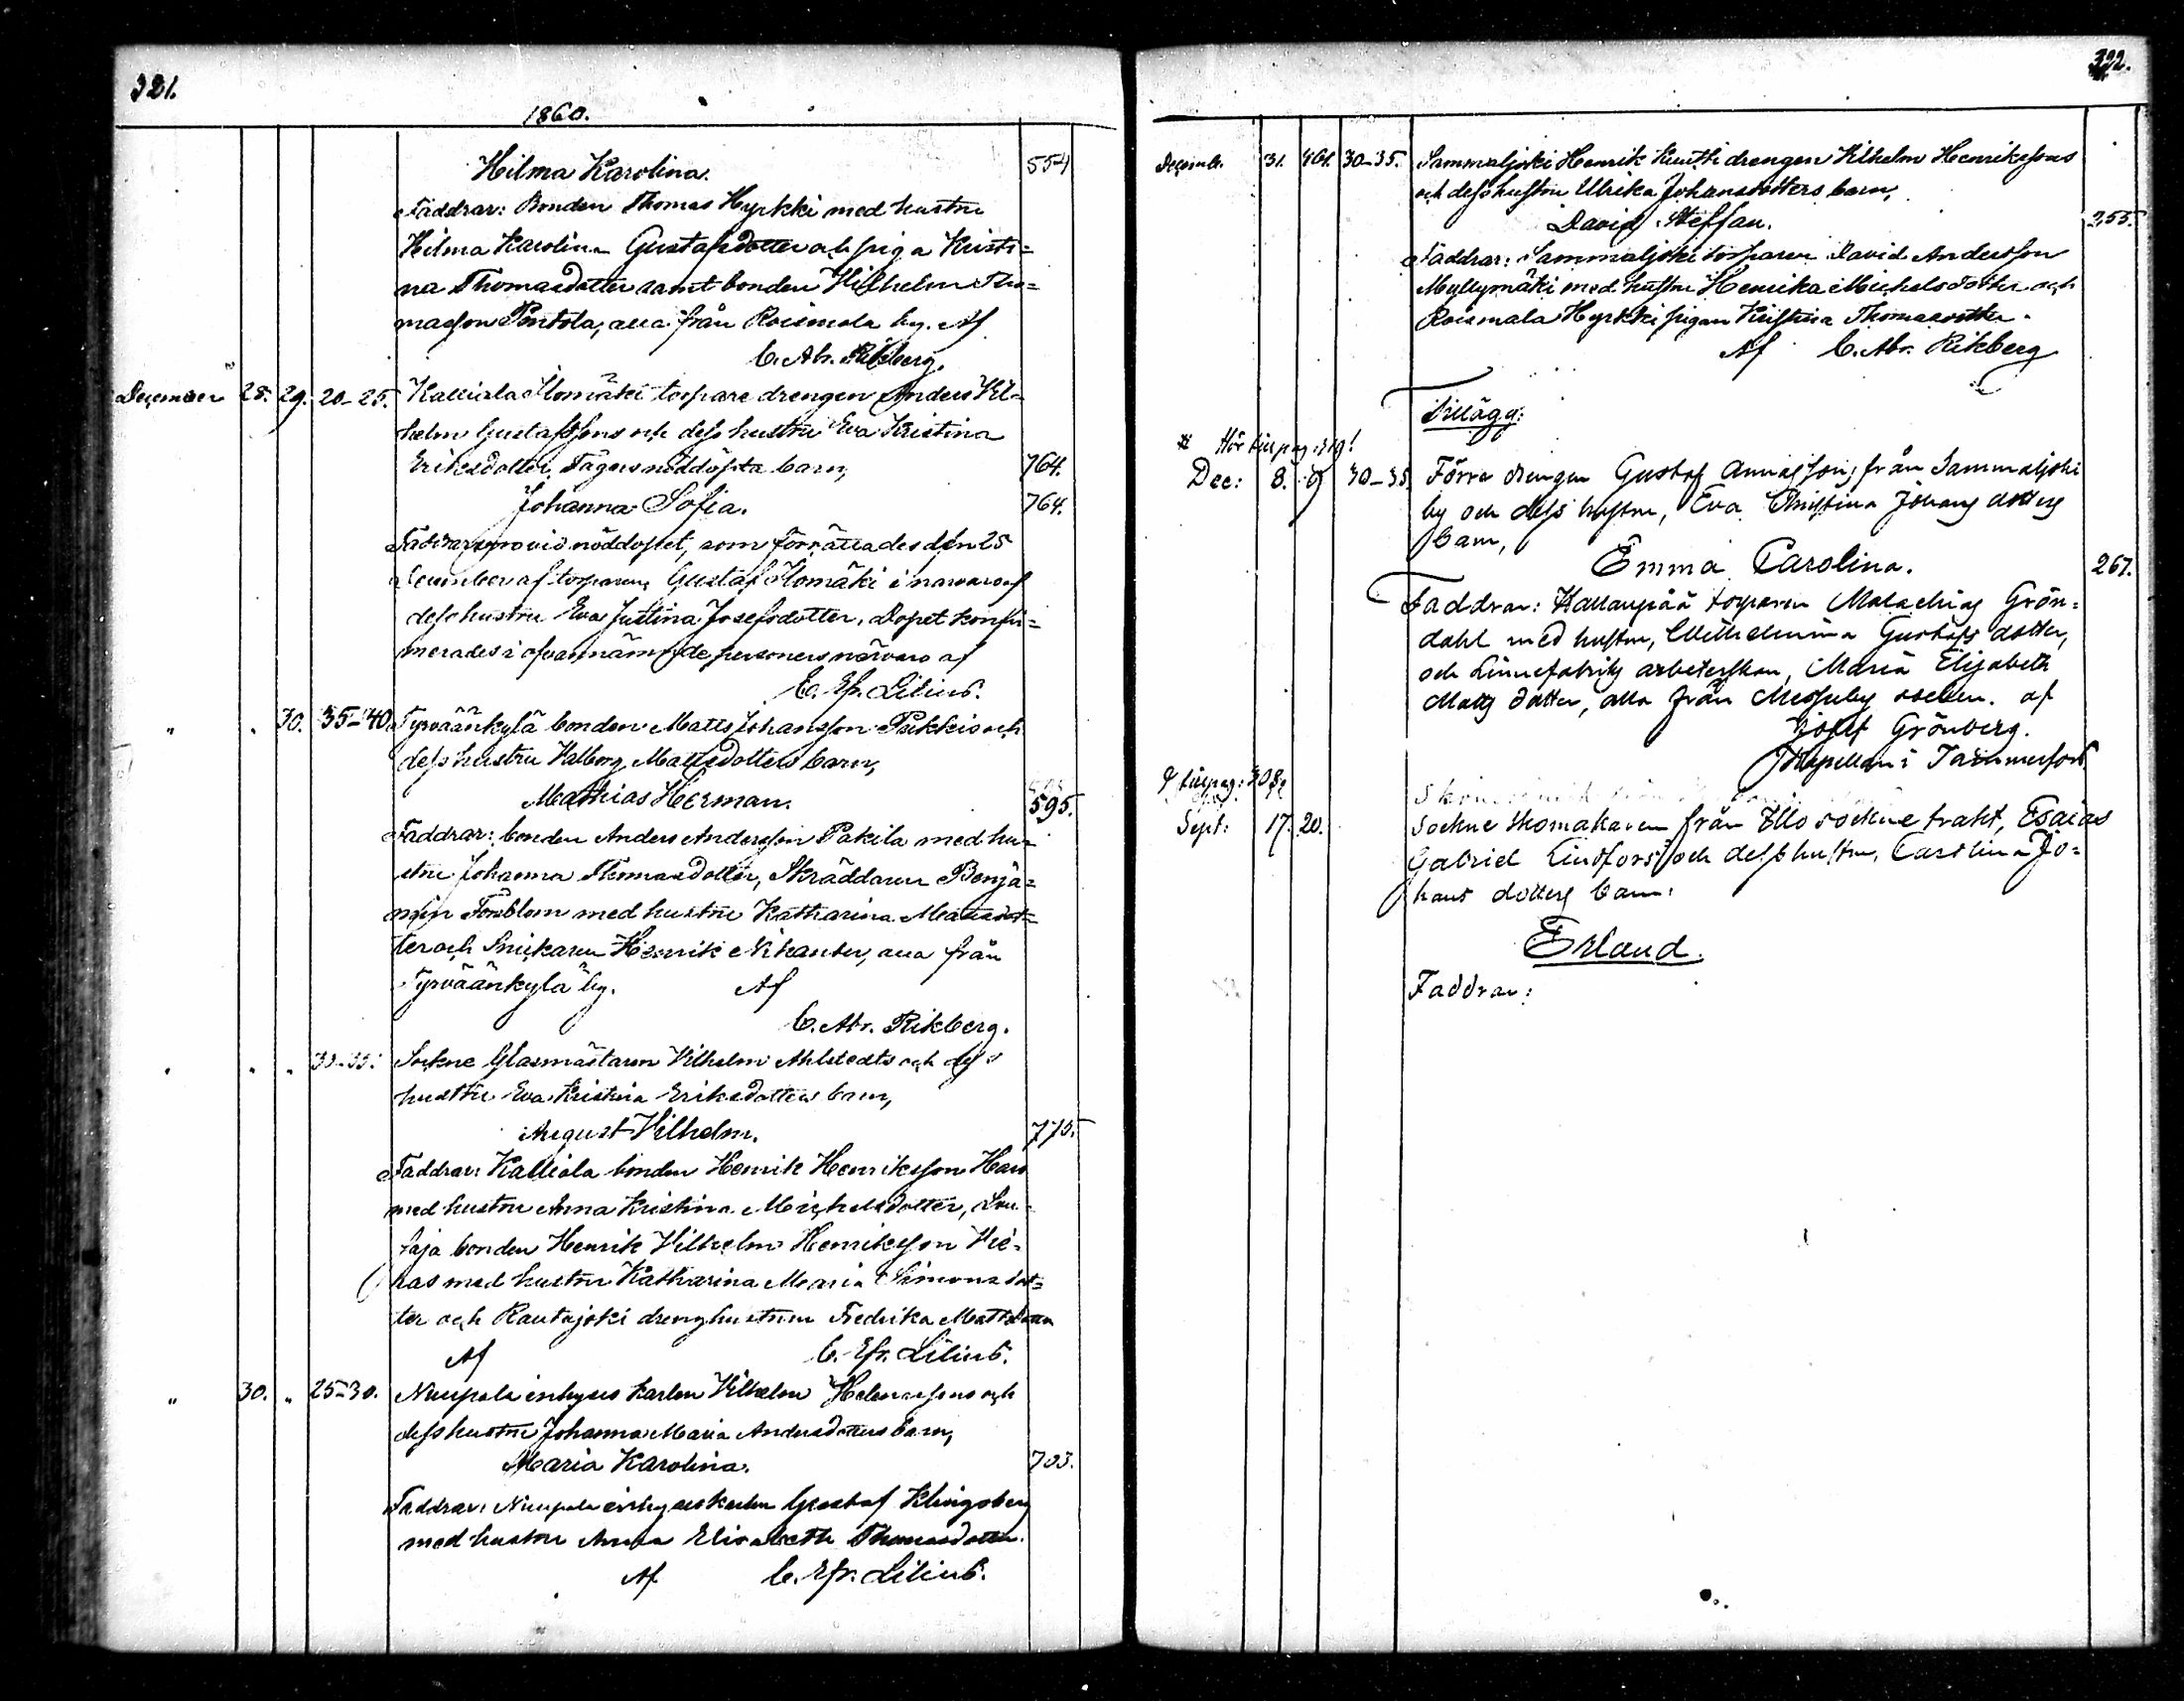 321.
1860.
Hilma Karolina. 554
Faddrar: Bonden Thomas Hyrkki med hustru
Hilma Karolina Gustafsdotter och piga Kristi=
na Thomasdotter samt bonden Vilhelm Tho=
masson Pentola, alla från Roismala by. Af
C. Abr. Rikberg.
December 25. 29. 20-25. Kalliala Ilomäki torpare drengen Anders Vil=
helm Gustafssons och dess hustru Eva Kristina
Eriksdotter Fågers nöddöpta barn, 764.
Johanna Sofia. 764.
Faddrar voro vid nöddopet, som förrättades den 25
December af torparen Gustaf Ilomäki i närvaro af
dess hustru Eva Justina Josefsdotter. Dopet konfir=
merades i ofvannämnde personers närvaro af
C. Efr. Lilius.
" " 30. 35-40. Tyrväänkylä bonden Matts Johansson Pukkis och
dess hustru Valborg Mattsdotters barn,
Mathias Herman. 595.
Faddrar: bonden Anders Andersson Pakila med hu=
stru Johanna Thomasdotter, Skräddaren Benja=
min Forsblom med hustru Katharina Mattsdot=
ter och Snickaren Henrik Nikander, alla från
Tyrväänkylä by. Af
C. Abr. Rikberg.
" " " 30-35. Sockne Glasmästaren Vilhelm Ahlstedts och dess
hustru Eva Kristina Eriksdotters barn,
August Vilhelm. 775.
Faddrar: Kalliala bonden Henrik Henriksson Haro
med hustru Anna Kristina Michelsdotter, Lou=
saja bonden Henrik Vilhelm Henriksson Vie=
ras med hustru Katharina Maria Simonsdot=
ter och Rautajoki drenghustrun Fredrika Mattsdotter
Af C. Efr. Lilius.
" 30. " 25-30. Nuupala inhyses karlen Vilhelm Helenassons och
dess hustru Johanna Maria Andersdotters barn,
Maria Karolina. 703.
Faddrar: Nuupala inhyseskarlen Gustaf Klingsberg
med hustru Anna Elisabeth Thomasdotter.
Af C. Efr. Lilius.
322.
Decemb. 31. 30-35. Sammaljoki Henrik Knutti drengen Vilhelm Henrikssons
och dess hustru Ulrika Johansdotters barn,
David Steffan. 255.
Faddrar: Sammaljoki torparen David Andersson
Myllymäki med hustru Henrika Michelsdotter och
Roismala Hyrkki pigan Kristina Thomasdotter.
Af C. Abr. Rikberg
Tillägg:
Hör till pag. 319!
Dec: 8. 9 30-35. Förre drengen Gustaf Annasson, från Sammaljoki
by och dess hustru, Eva Christina Johans dotters
barn,
Emma Carolina. 267.
Faddrar: torparen Malachias Grön=
dahl med hustru, Wilhelmina Gustafs dotter,
och Linnefabriks arbeterskan, Maria Elisabeth
Matts dotter, alla från Messuby socken. af
Josef Grönberg.
Kapellan i Tammerfors.
till pag: 308.
Sept: 17. 20. Sockne skomakaren från Illo sockne trakt, Esaias
Gabriel Lindfors och dess hustru, Carolina Jo=
hans dotters barn:
Erland.
Faddrar: